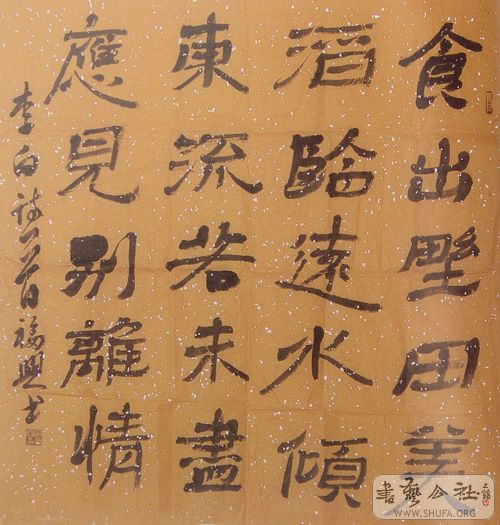 食出墅田美
酒臨遠水傾
東流若未盡
應見別離情
李白詩一首福興書
書藝公社
WWW.SHUFA.ORG